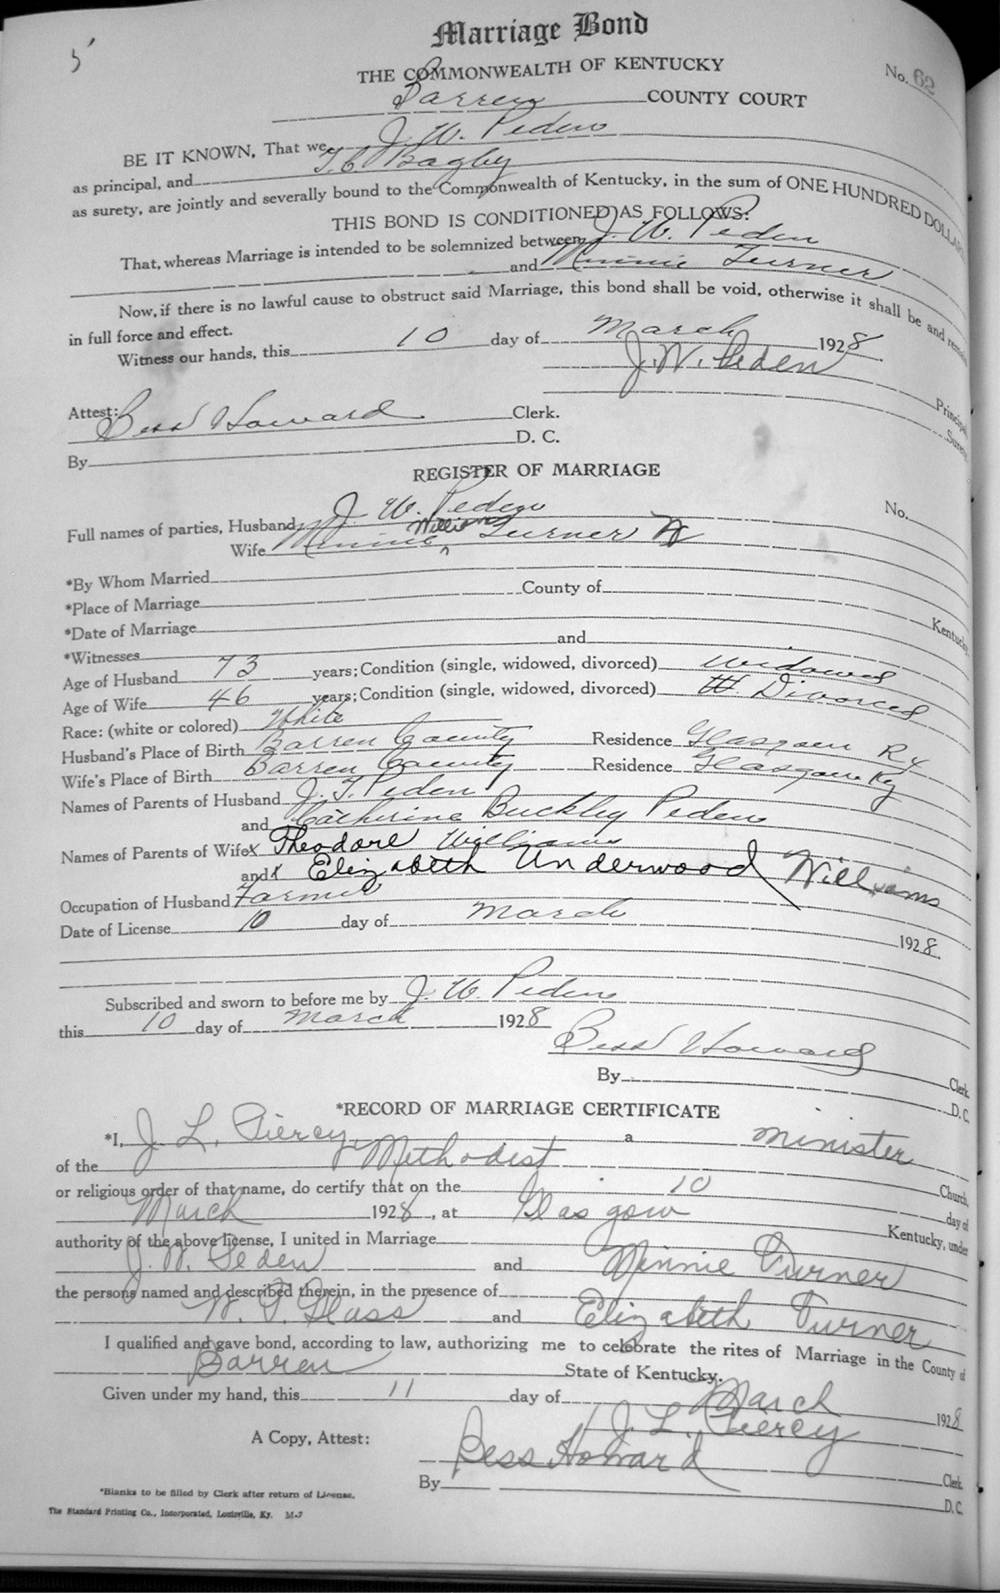 5'
Marriage Bond
No. 62
THE COMMONWEALTH OF KENTUCKY
Barren COUNTY COURT
BE IT KNOWN, That we, J. W. Peden
as principal, and T. C. Bagby
as surety, are jointly and severally bound to the Commonwealth of Kentucky, in the sum of ONE HUNDRED DOLLARS
THIS BOND IS CONDITIONED AS FOLLOWS:
That, whereas Marriage is intended to be solemnized between J. W. Peden
and Minnie Turner
Now, if there is no lawful cause to obstruct said Marriage, this bond shall be void, otherwise it shall be and remain
in full force and effect.
Witness our hands, this 10 day of March 1928.
J. W. Peden
Principal.
Attest: Bess Howard Clerk.
Surety.
By D. C.
REGISTER OF MARRIAGE
No.
Full names of parties, Husband J. W. Peden
Wife Minnie Williams Turner W
*By Whom Married
*Place of Marriage County of Kentucky.
*Date of Marriage
*Witnesses and
Age of Husband 73 years; Condition (single, widowed, divorced) widowed
Age of Wife 46 years; Condition (single, widowed, divorced) Divorced
Race: (white or colored) White
Husband's Place of Birth Barren County Residence Glasgow Ky
Wife's Place of Birth Barren County Residence Glasgow Ky
Names of Parents of Husband J. T. Peden
and Catherine Buckley Peden
Names of Parents of Wife Theodore Williams
and Elizabeth Underwood Williams
Occupation of Husband Farmer
Date of License 10 day of March 1928.
Subscribed and sworn to before me by J. W. Peden
this 10 day of March 1928
Bess Howard Clerk
By D. C.
*RECORD OF MARRIAGE CERTIFICATE
*I, J. L. Piercy, a minister
of the Methodist Church,
or religious order of that name, do certify that on the 10 day of
March 1928, at Glasgow Kentucky, under
authority of the above license, I united in Marriage
J. W. Peden and Minnie Turner
the persons named and described therein, in the presence of
W. P. Glass and Elizabeth Turner
I qualified and gave bond, according to law, authorizing me to celebrate the rites of Marriage in the County of
Barren State of Kentucky.
Given under my hand, this 11 day of March 1928
J. L. Piercy
A Copy, Attest: Bess Howard Clerk
By D. C.
*Blanks to be filled by Clerk after return of License.
The Standard Printing Co., Incorporated, Louisville, Ky. M-7